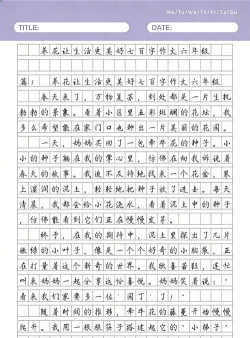 Mo/Tu/We/Th/Fr/Sa/Su
TITLE:
DATE:
养花让生活更美好七百字作文六年级
篇1 养花让生活更美好七百字作文六年级
春天来了，万物复苏，到处都是一片生机
勃勃的景象。看着小区里五彩斑斓的花坛，我
多么希望能在家门口也种出一片美丽的花园。
一天，妈妈买回了一包牵牛花的种子。小
小的种子躺在我的掌心里，仿佛在向我诉说着
春天的故事。我迫不及待地找来一个花盆，装
上湿润的泥土，轻轻地把种子放了进去。每天
清晨，我都会给小花浇水，看着泥土中的种子
，仿佛能看到它们正在慢慢发芽。
终于，在我的期待中，泥土里探出了几片
嫩绿的小叶子，像是一个个好奇的小脑袋，正
在打量着这个新奇的世界。我欣喜若狂，连忙
叫来妈妈一起分享这份喜悦。妈妈笑着说："
看来我们家要多一位'园丁'了！"
随着时间的推移，牵牛花的藤蔓开始慢慢
爬升。我用一根根筷子搭建起它的"小梯子"